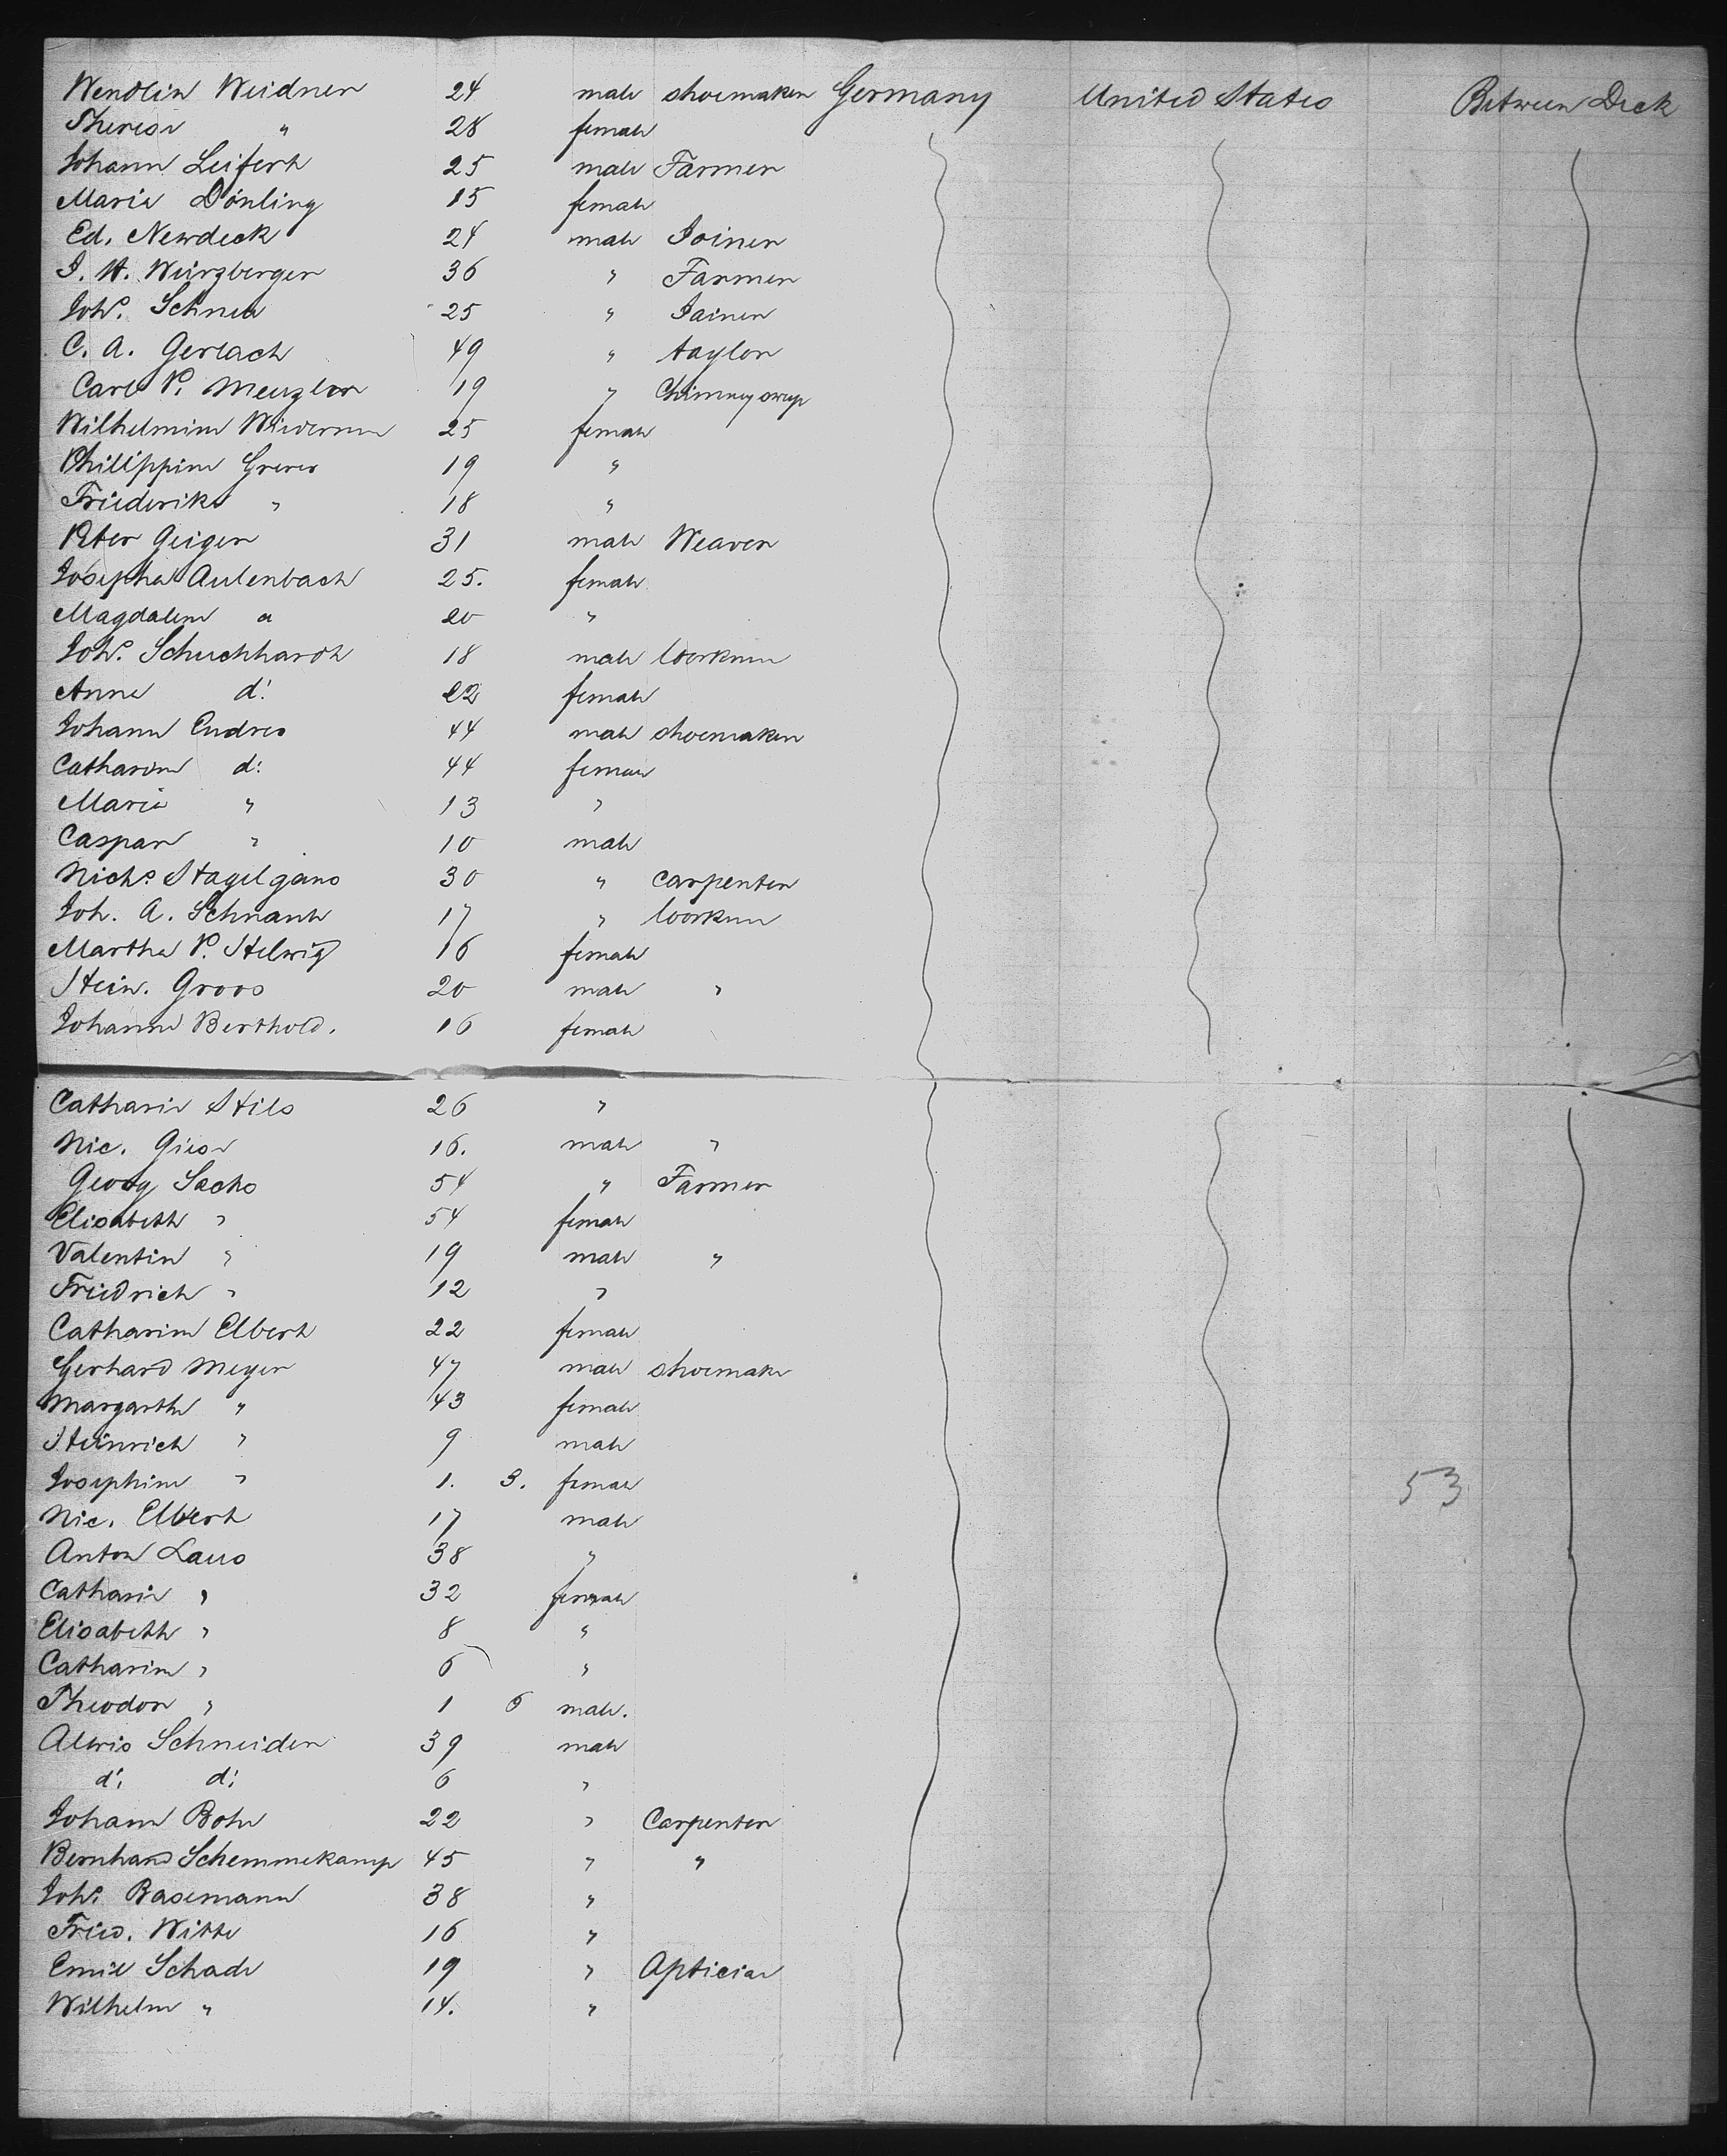 Wendlin Weidner 24 male shoemaker Germany United States Between Deck
Therese " 28 female
Johann Leifert 25 male Farmer
Marie Dönling 15 female
Ed. Newdeck 24 male Joiner
J. H. Würzberger 36 " Farmer
Joh. Schnee 25 " Joiner
C. A. Gerlach 49 " taylor
Carl P. Menzler 19 " Chimneysweep
Wilhelmine 25 female
Philippine Greves 19 "
Friederike " 18 "
Peter Geiger 31 male Weaver
Josepha Aulenbach 25. female
Magdalene " 20 "
Joh. Schuchhardt 18 male workman
Anna d: 22 female
Johann Endres 44 male shoemaker
Catharine d: 44 female
Marie " 13 "
Caspar " 10 male
Nichs. Stagelgans 30 " carpenter
Joh. A. Schnank 17 " workman
Martha P. Helwig 16 female
Hein. Groos 20 male "
Johanne Berthold. 16 female
Catharin Stils 26 "
Nic. Giese 16. male "
Georg Sachs 54 " Farmer
Elisabeth " 54 female
Valentin " 19 male "
Friedrich " 12 "
Catharine Elbert 22 female
Gerhard Meyer 47 male shoemake
Margarthe " 43 female
Heinrich " 9 male
Josephine " 1. 3. female 53
Nic. Elbert 17 male
Anton Laus 38 "
Catharin " 32 female
Elisabeth " 8 "
Catharine " 6 "
Theodor " 1 6 male.
Alwis Schneider 39 male
d: d: 6 "
Johann Bohe 22 " Carpenter
Bernhard Schemmekamp 45 " "
Joh. Basemann 38 "
Fried. Witte 16 "
Emil Schade 19 " Aptician
Wilhelm " 14. "